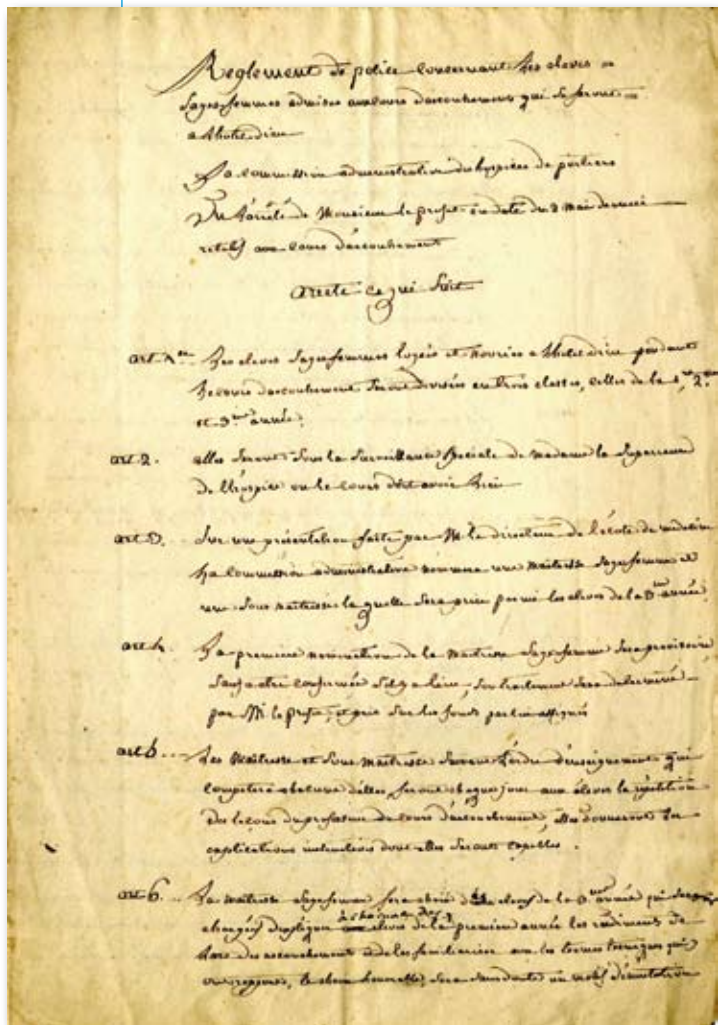 Reglement de police concernant les eleves =
sages femmes admises aux cours daccouchement qui se feront =
a lhotel dieu
La commission administrative des hospices de poitiers
Vu l'arrêté de Monsieur le prefet en date du 8 mai dernier
relatif aux cours d'accouchement
arrete ce qui suit
art. 1er Les eleves sages femmes logées et nourries a lhotel dieu pendant
le cours daccouchement seront divisées en trois classes, celles de la 1re, 2me
et 3me année.
art 2. elles seront sous la surveillance speciale de madame la superieure
de l'hospice ou le cours doit avoir lieu
art 3. sur une présentation faite par Mr le directeur de l'école de medecine
La commission administrative nommera une maitresse sage femme et
une sous maitresse la quelle sera prise parmi les eleves de la 3me année
art 4. La premiere nomination de la maitresse sage femme sera provisoire
sauf a etre confirmée s'il y a lieu, son traitement sera determiné
par Mr le prefet, et pris sur les fonds par lui assignés
art 5... Les Maitresse et sous maitresse suivant l'ordre d'enseignement qui
competera a chacune d'elles, feront chaque jour aux élèves la repétition
des leçons du professeur du cours d'accouchement, elles donneront les
explications dont elles seront capables.
art 6... La maitresse sage femme fera choix des eleves de la 3me année qui seront
chargées d'expliquer à chacune des eleves de la premiere année les rudiments de
l'art des accouchements et de les familiariser avec les termes techniques qui
le choix honorable sera sans doute un motif d'émulation